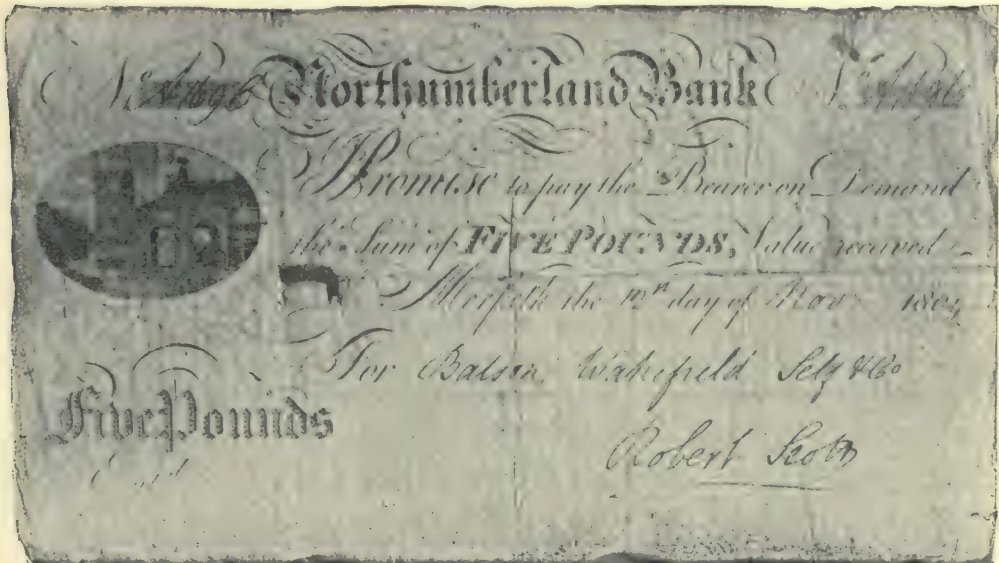 No Northumberland Bank No
I Promise to pay the Bearer on Demand
the Sum of FIVE POUNDS, Value received
Morpeth the 12th day of Nov 1804
For Batson Wakefield Self & Co
Five Pounds
Robert Scott